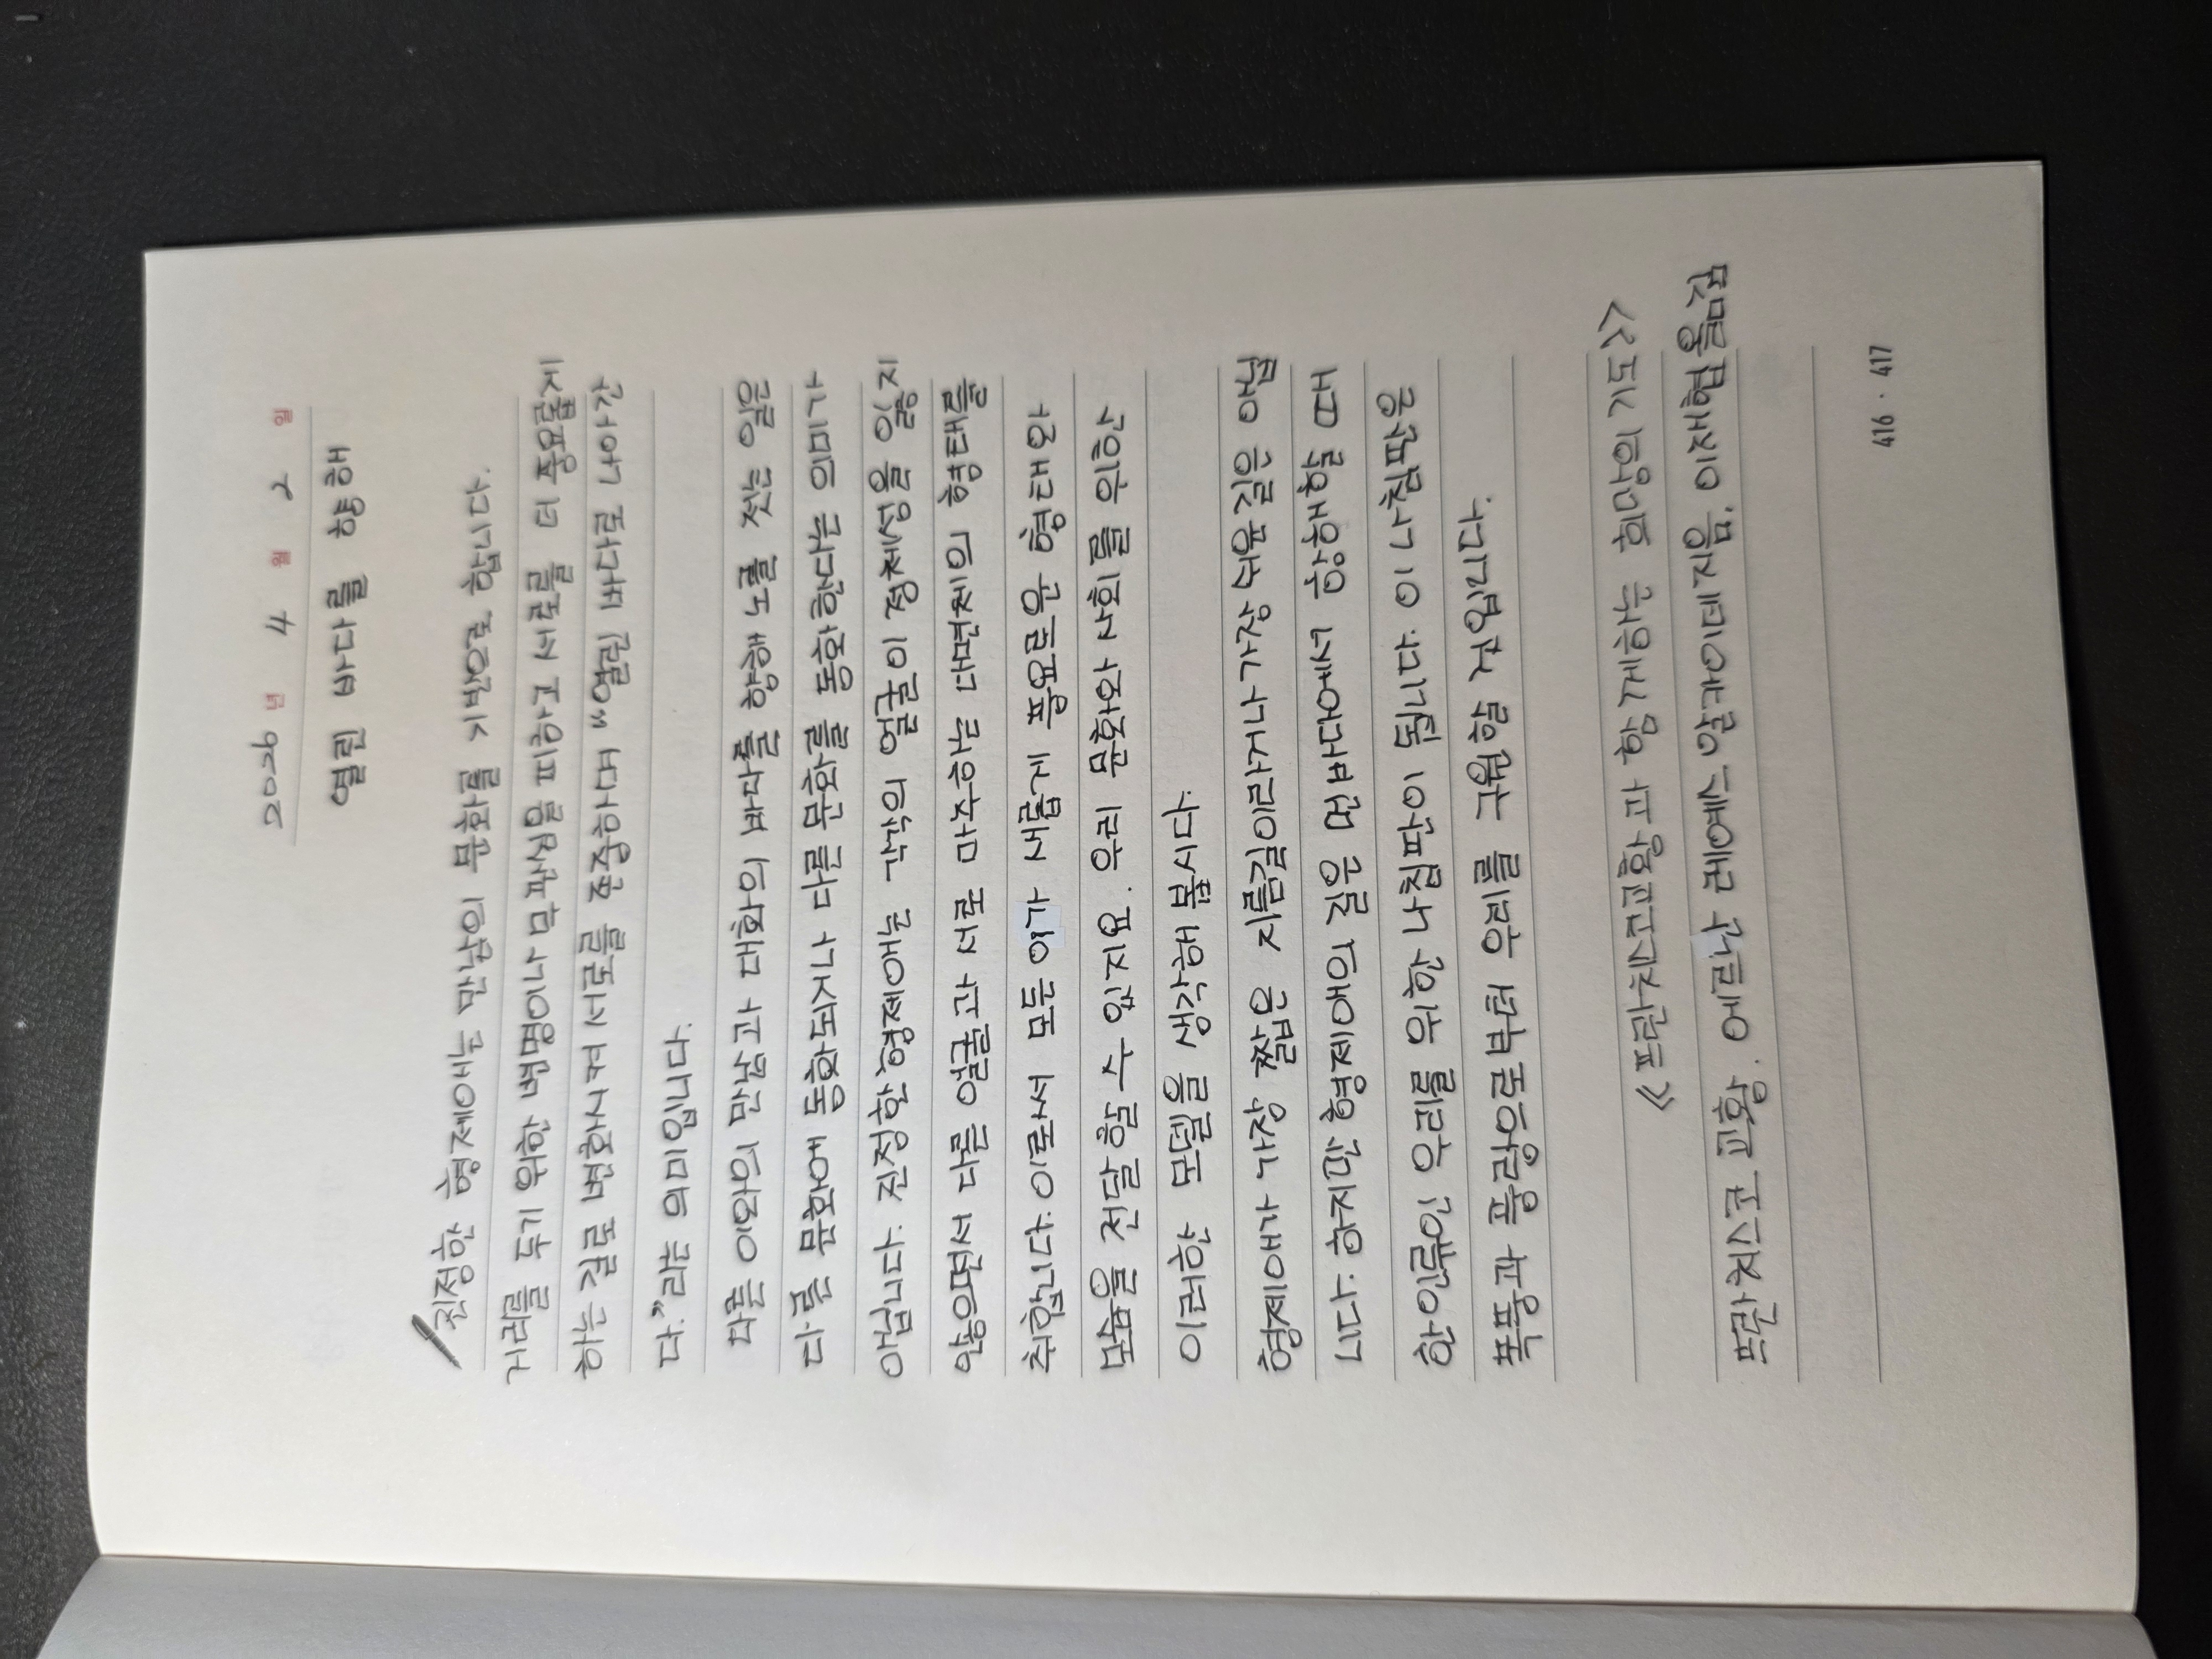 2026 년 4 월 2 일
열린 바다를 향해
진정한 형제애는 만남의 문화를 기반으로 합니다.
거리를 두기 위한 변명이나 무관심을 피하고 서로를 더 풍요롭게
하는 길로 변화시켜 서로를 존중하며 "열린 바다로 나아간
다."라는 의미입니다.
다른 이와의 만남과 대화의 바다를 향해 노를 젓는 일은
다른 문화에 동화되거나 다른 문화를 동화한다는 의미가
아닙니다. 진정한 형제애는 각각의 얼굴이 정체성을 잃지
않으면서 다른 얼굴과 서로 마주하는 다면체의 형태를
취합니다. 이로써 모든 이가 새롭게 풍요로운 형태와
모습을 전달할 수 있지요. 우리 문화와 사회를 위한
이러한 모델을 생각해 봅시다.
형제애가 가장 짧은 지름길이라거나 가장 쉬운 길은 아닙
니다. 하지만 형제애의 길은 먼 바다에서 항해할 때
한 인류인 우리를 위한 나침판이 됩니다. 이 나침판은
폭풍과 풍랑으로부터 우리를 구원할 것입니다.
《프란치스코 교황과 함께하는 희망의 기도》
프란치스코 교황. 에르난 레예스 알카이데 지음. 이재협 옮김
416 · 417